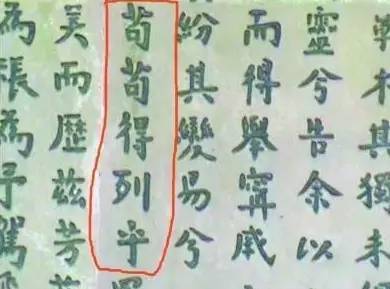 不其獨未
靈兮告余以
而得舉甯戚
紛其變易兮
苟苟得列乎
而歷茲芳
為張為予駕